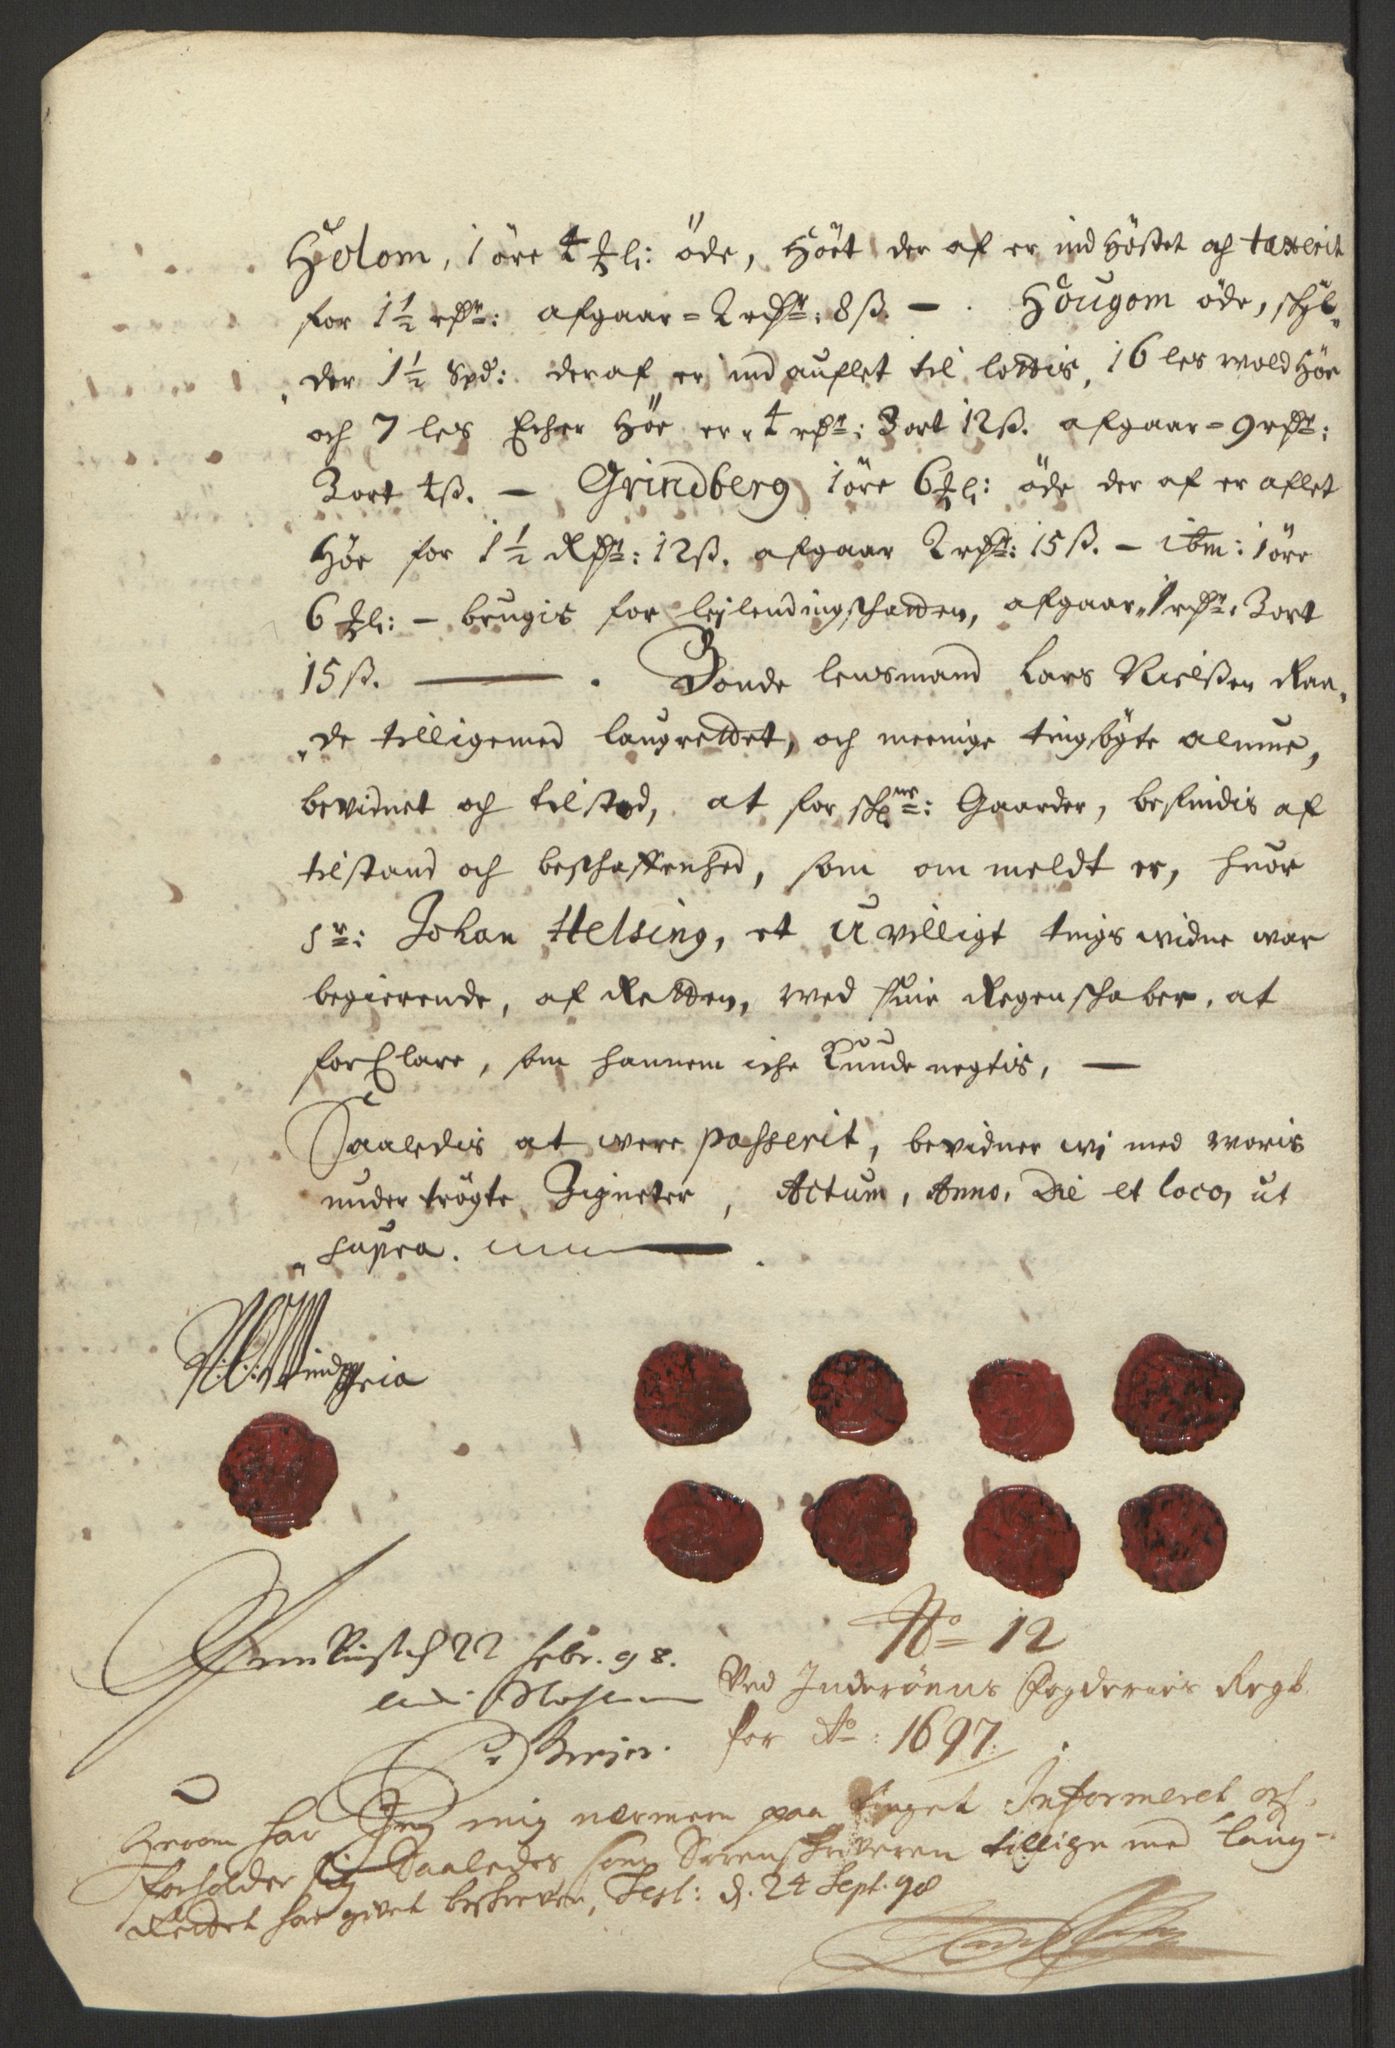 Holom, 1 øre 4 : öde, Höet der af er ind Höstet och taxerit
for 1½ rdr: afgaar = 2 rdr: 8 ß. — . Hougom öde, schyl„
„der 1½ Spd: deraf er ind auflet til lottis, 16 les wold Höe
och 7 les Echer Höe er „ 4 rdr: 3 ort 12 ß. afgaar = 9 rdr:
3 ort 4 ß. — Grindberg 1 öre 6 : öde der af er aflet
Höe for 1½ Rdr: 12 ß. afgaar 2 rdr: 15 ß. — ibm: 1 öre
6 : — brugis for leilendingschatten, afgaar „ 1 rdr: 3 ort
15 ß. ——— . Bonde lensmand Lars Nielßen Raa„
„de tilligemed laugrettet, och meenige tingsögte almue,
bevidnet och tilstod, at for schr: Gaarder, befindis af
tilstand och beschaffenhed, som om meldt er, huor
Sr: Johan Helsing, et Uvilligt tingswidne war
begierende, af Retten, wed sine Regenschaber, at
forklare, som hannem iche Kunde negtis, —
Saaledis at were passerit, bevidner wi med woris
under trögte Zigneter, Actum, Anno, Die et loco, ut
„supra. ———
22 Febr. 98.
No 12
Ved Inderöens Fogderies Regt.
for Ao: 1697.
Herom har Jeg mig nermere paa tinget Informeret och
forholder sig Saaledes som Sorenskriveren tillige med Laug-
Rettet har givet beskreven, Test: d. 24 Sept. 98